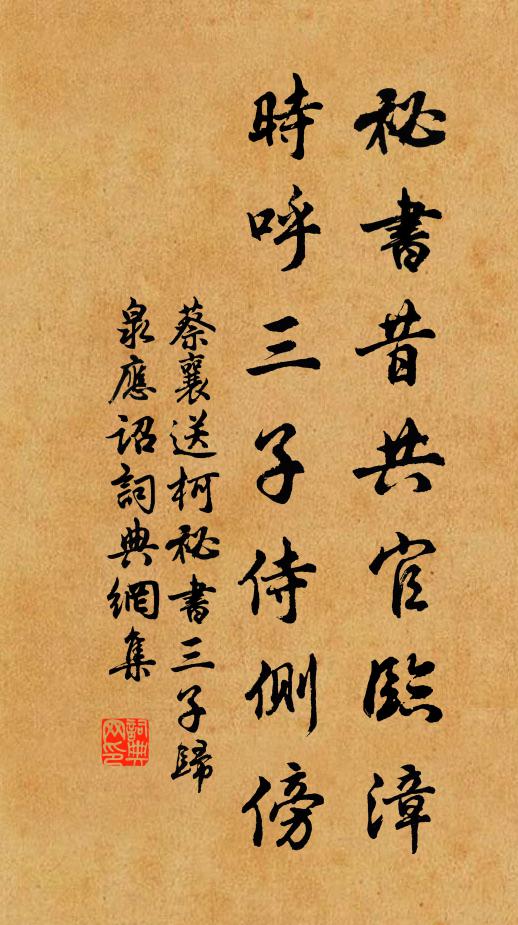 秘書昔共官臨漳
時呼三子侍側傍
蔡襄送柯秘書三子歸
泉應詔詞典網集
詞典网印